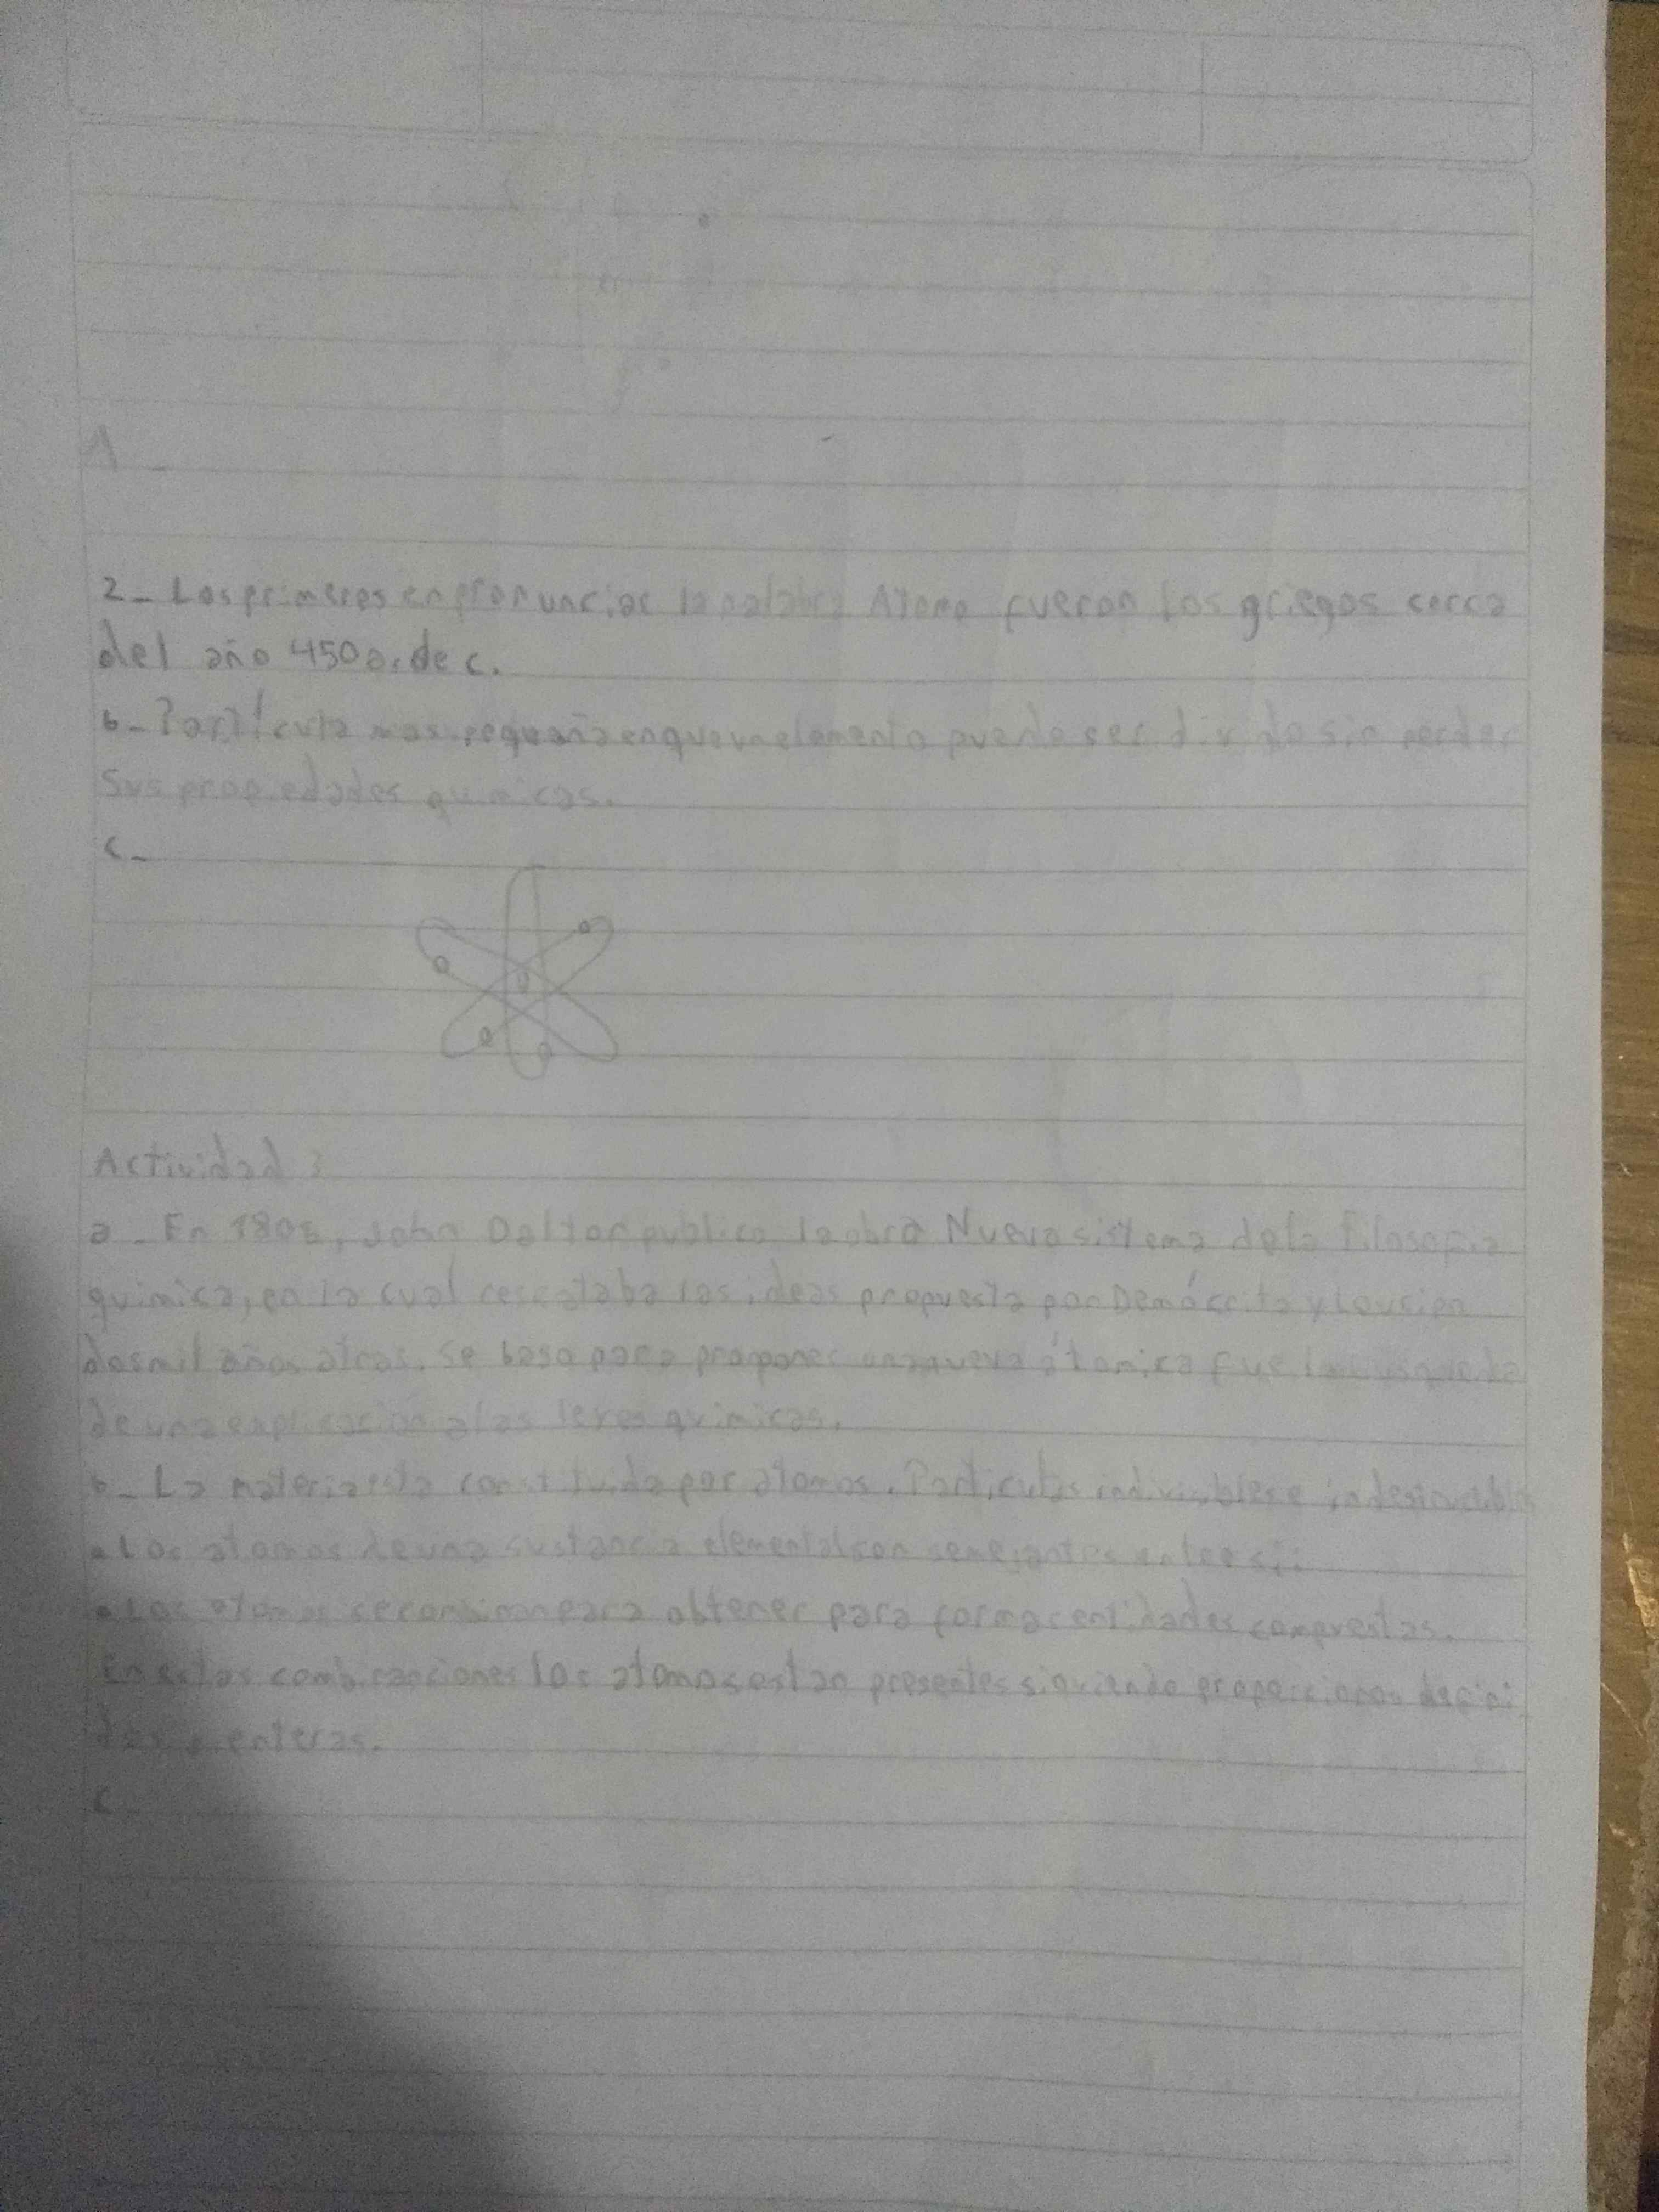 1 -
2- Los primeros en pronunciar la palabra Atomo fueron los griegos cerca
del año 450 a. de c.
b- Partícula mas pequeña en que un elemento puede ser divido sin perder
Sus propiedades quimicas.
c-
Actividad 3
a - En 1808, John Dalton publico la obra Nuevo sistema de la filosofia
quimica, en la cual rescataba las ideas propuesta por Demócrito y Leucipo
dos mil años atras. Se baso para proponer una nueva átomica fue la busqueda
de una explicación a las leyes quimicas.
b- La materia esta constituida por atomos. Particulas indivisibles e
• Los atomos de una sustancia elemental son semejantes entre si:
• Los atomos se combinan para obtener para formar entidades compuestas.
En estas combinanciones los atomos estan presentes siguiendo proporciones defini
das y enteras.
c